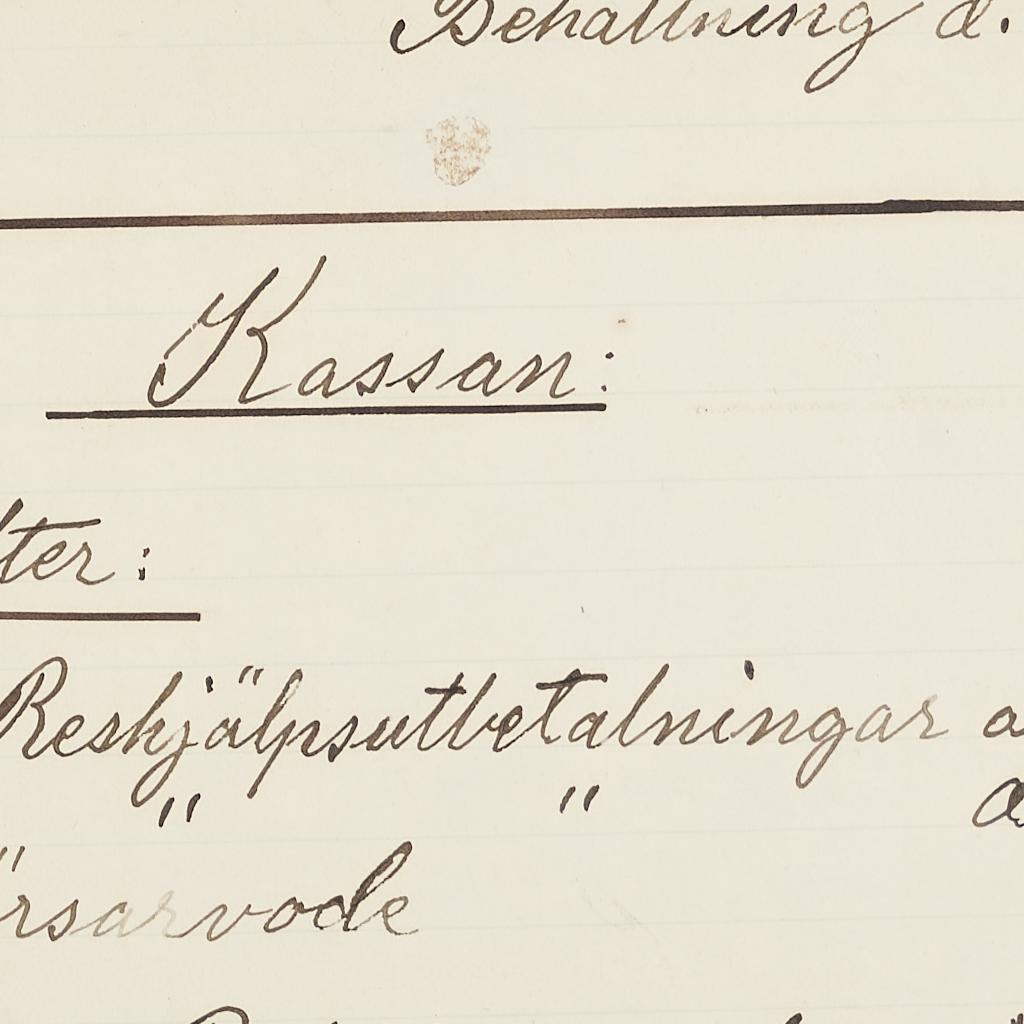 Behållning d.
Kassan:
ter:
Reshjälpsutbetalningar a
" " a
örsarvode